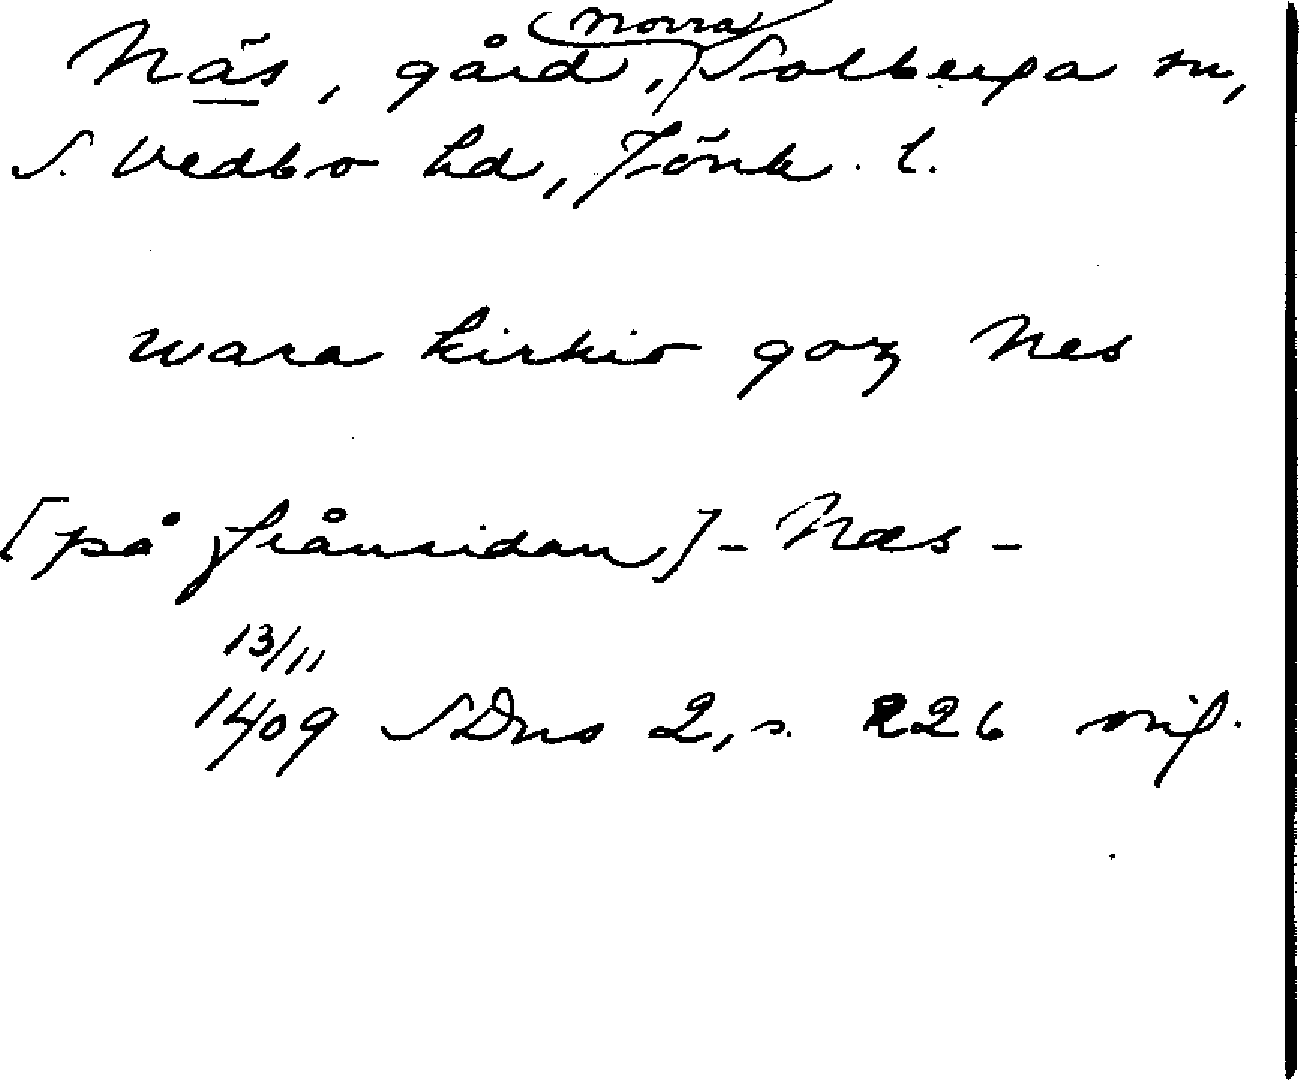 Näs, gård, Norra Solberga sn,
S. Vedbo hd, Jönk. l.
wara kirkio goz Nes
[på frånsidan] - Næs -
13/11
1409 SDns 2, s. 226 mif.